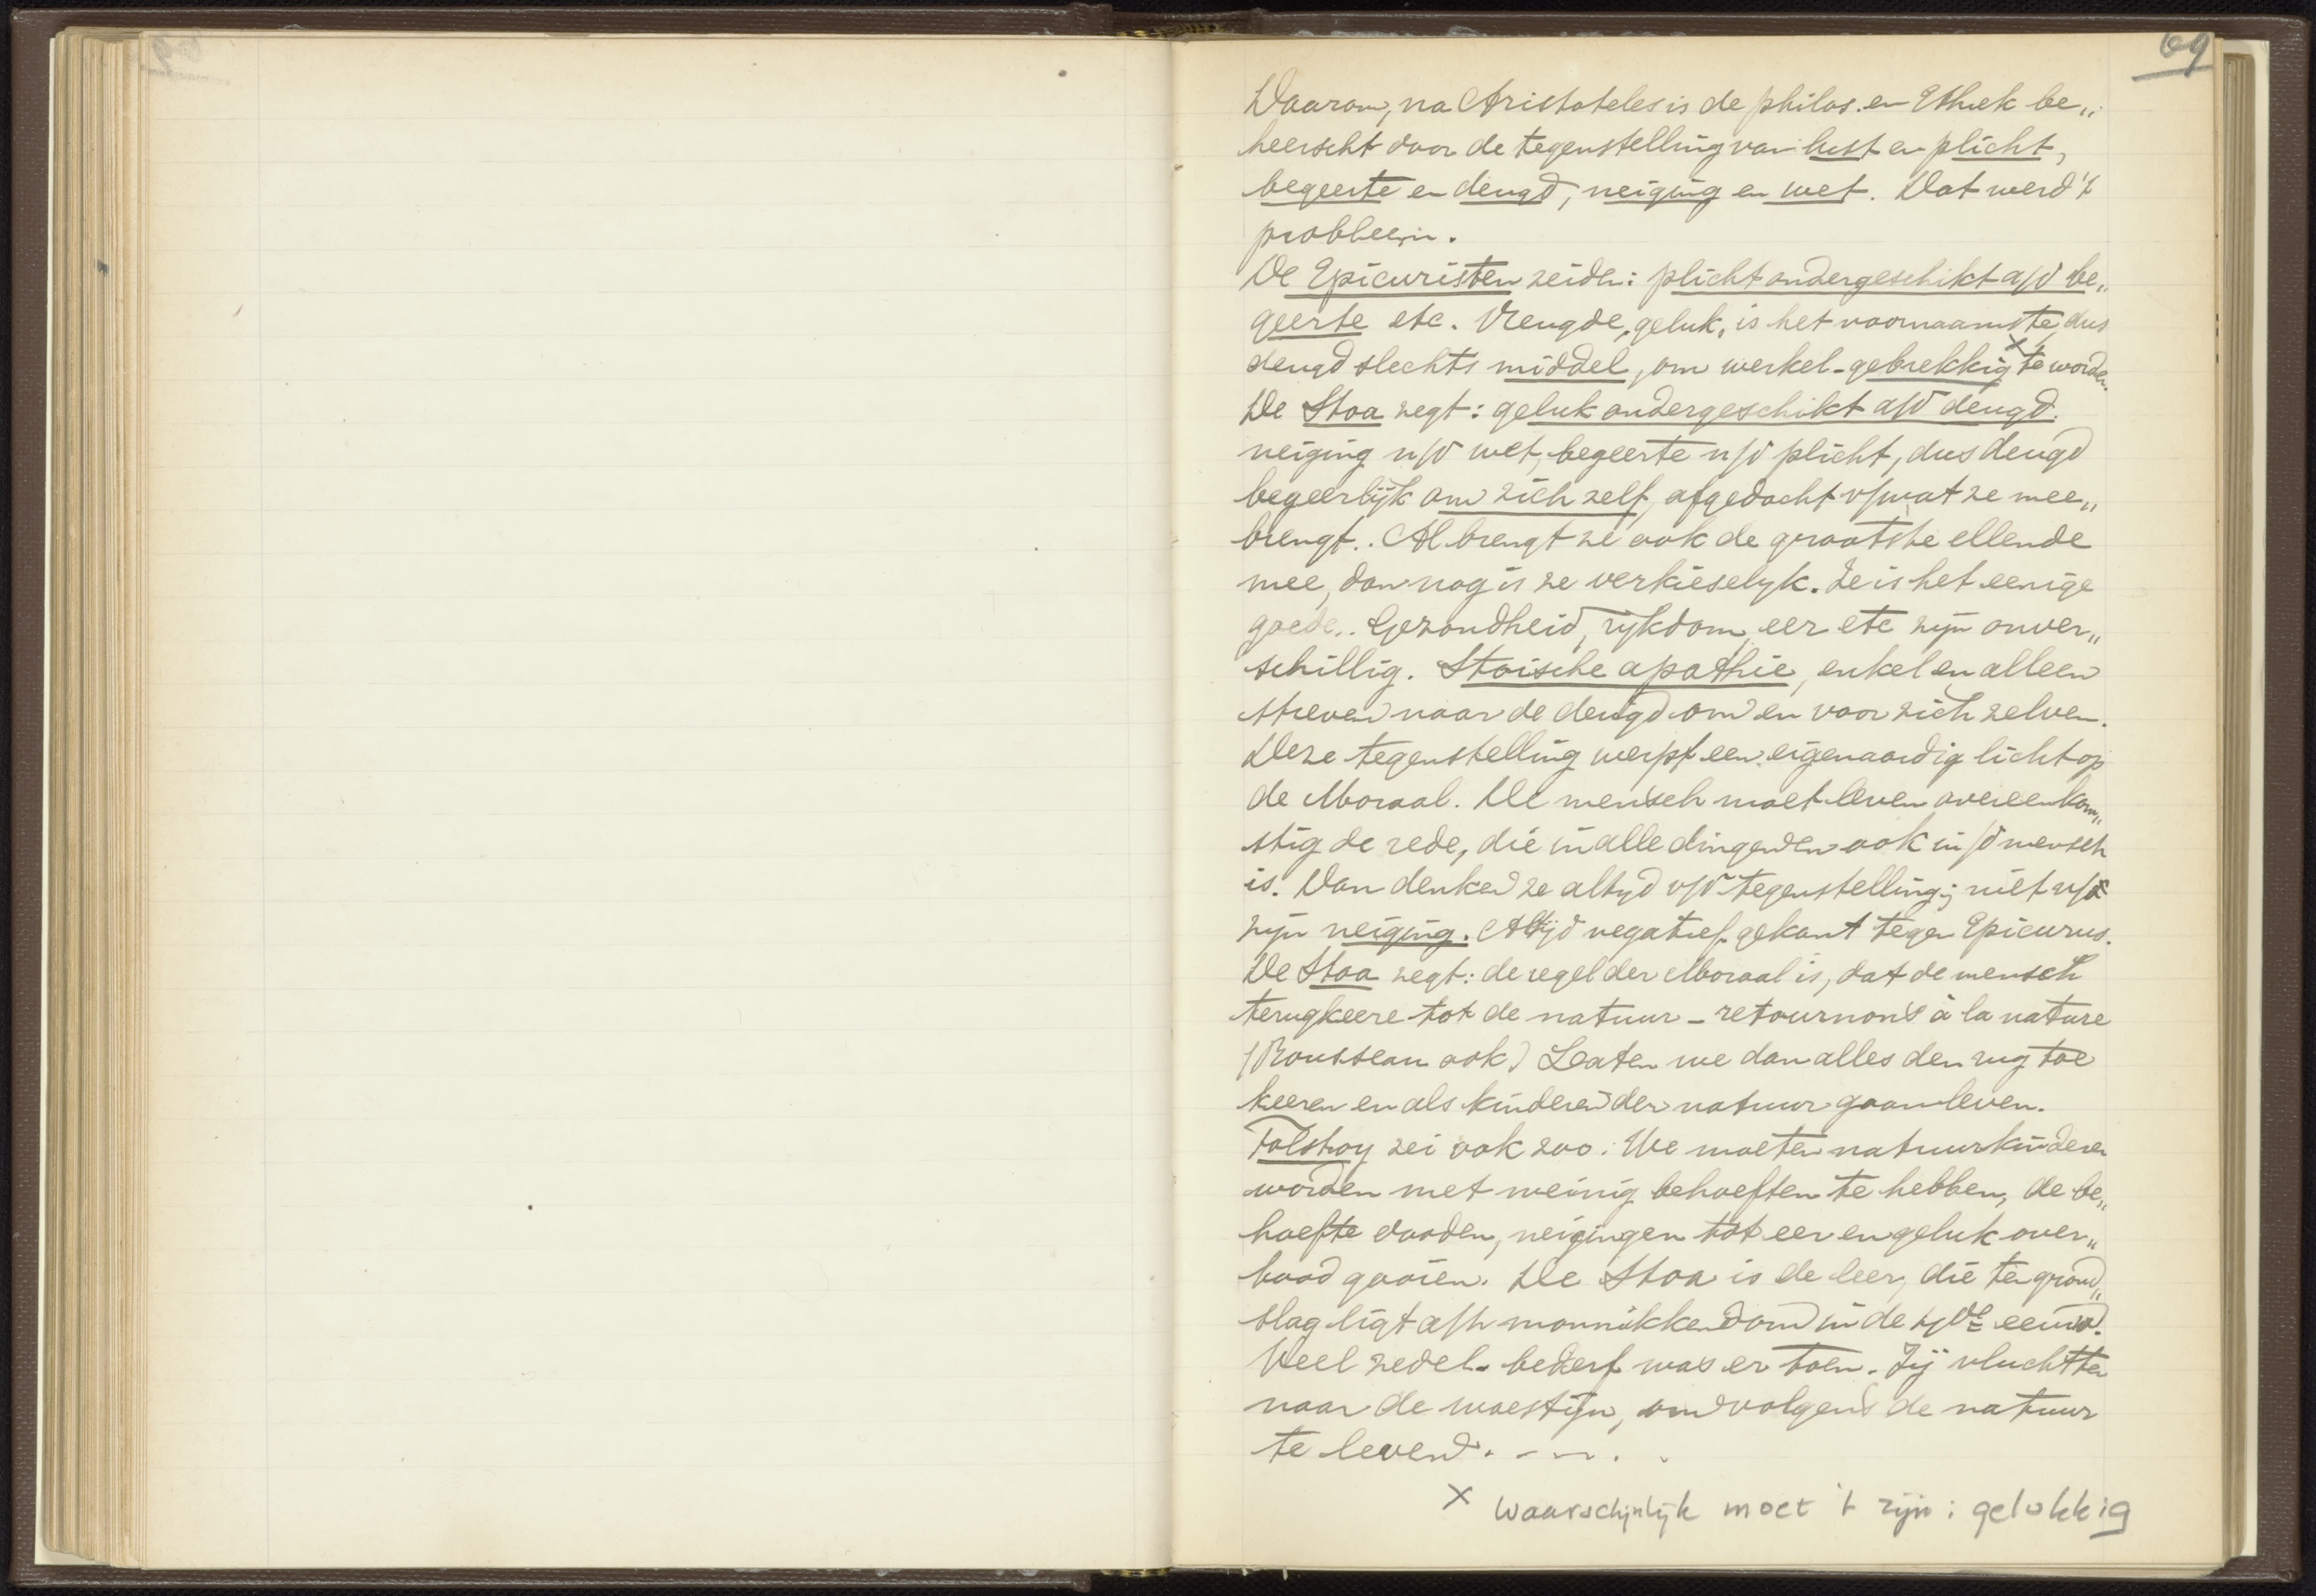 69
Daarom, na Aristoteles is de philos. en Ethiek be„
heerscht door de tegenstelling van lust en plicht,
begeerte en deugd, neiging en wet. Dat werd 't
probleem.
De Epicuristen zeiden: plicht ondergeschikt a/d be„
geerte etc. Vreugde, geluk, is het voornaamste, dus
deugd slechts middel, om werkel. gebrekkig x te worden.
De Stoa zegt: geluk ondergeschikt a/d deugd.
neiging a/d wet, begeerte a/d plicht, dus deugd
begeerlijk om zich zelf, afgedacht v/wat ze mee„
brengt. Al brengt ze ook de grootste ellende
mee, dan nog is ze verkieselyk. Ze is het eenige
goede. Gezondheid, rykdom, eer etc zyn onver„
schillig. Stoische apathie, enkel en alleen
streven naar de deugd om en voor zich zelven.
Deze tegenstelling werpt een eigenaardig licht op
de Moraal. De mensch moet leven overeenkom„
stig de rede, die in alle dingen en ook in/d mensch
is. Dan denken ze altyd v/d tegenstelling; niet v/d
zyn neiging. Altijd negatief gekant tegen Epicurus.
De Stoa zegt: de regel der Moraal is, dat de mensch
terugkeere tot de natuur - retournons à la nature
(Rousseau ook) Laten we dan alles den rug toe
keeren en als kinderen der natuur gaan leven.
Tolstoy zei ook zoo: We moeten natuurkinderen
worden met weinig behoeften te hebben, de be„
hoefte dooden, neigingen tot eer en geluk over„
bood gooien. De Stoa is de leer, die ten grond„
slag ligt a/h monnikkendom in de eeuw.
Veel zedel. bederf was er toen. Zij vluchtten
naar de woestijn, om volgens de natuur
te leven. - - - . .
x waarschijnlijk moet 't zijn: gelukkig